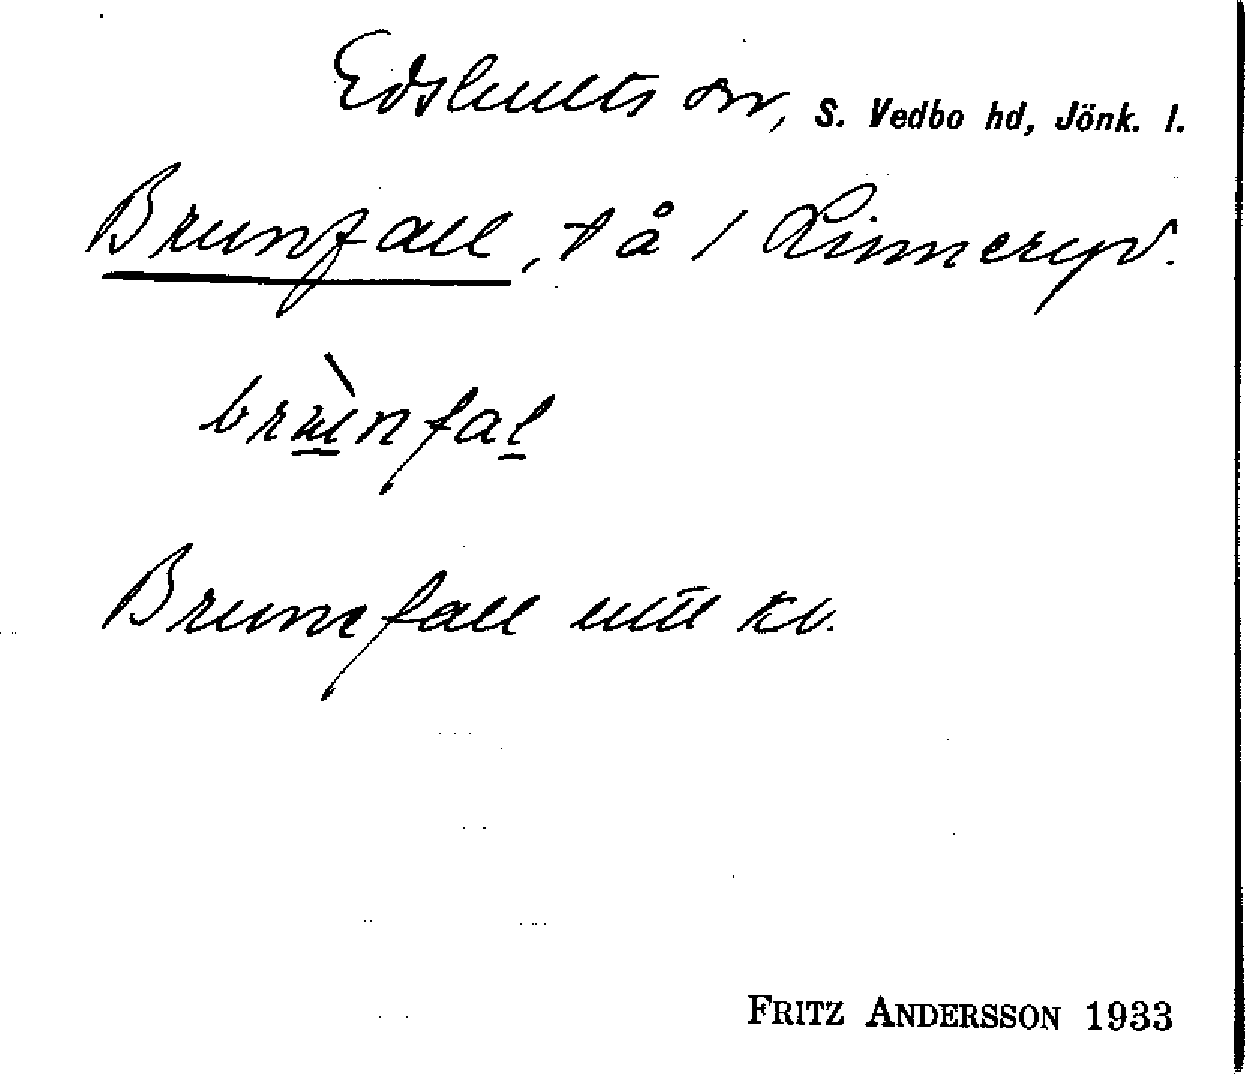 Edshults sn, S. Vedbo hd, Jönk. l.
Brunfall, t å 1 Rinneryd.
brùnfal
Brunefall utt kv.
FRITZ ANDERSSON 1933